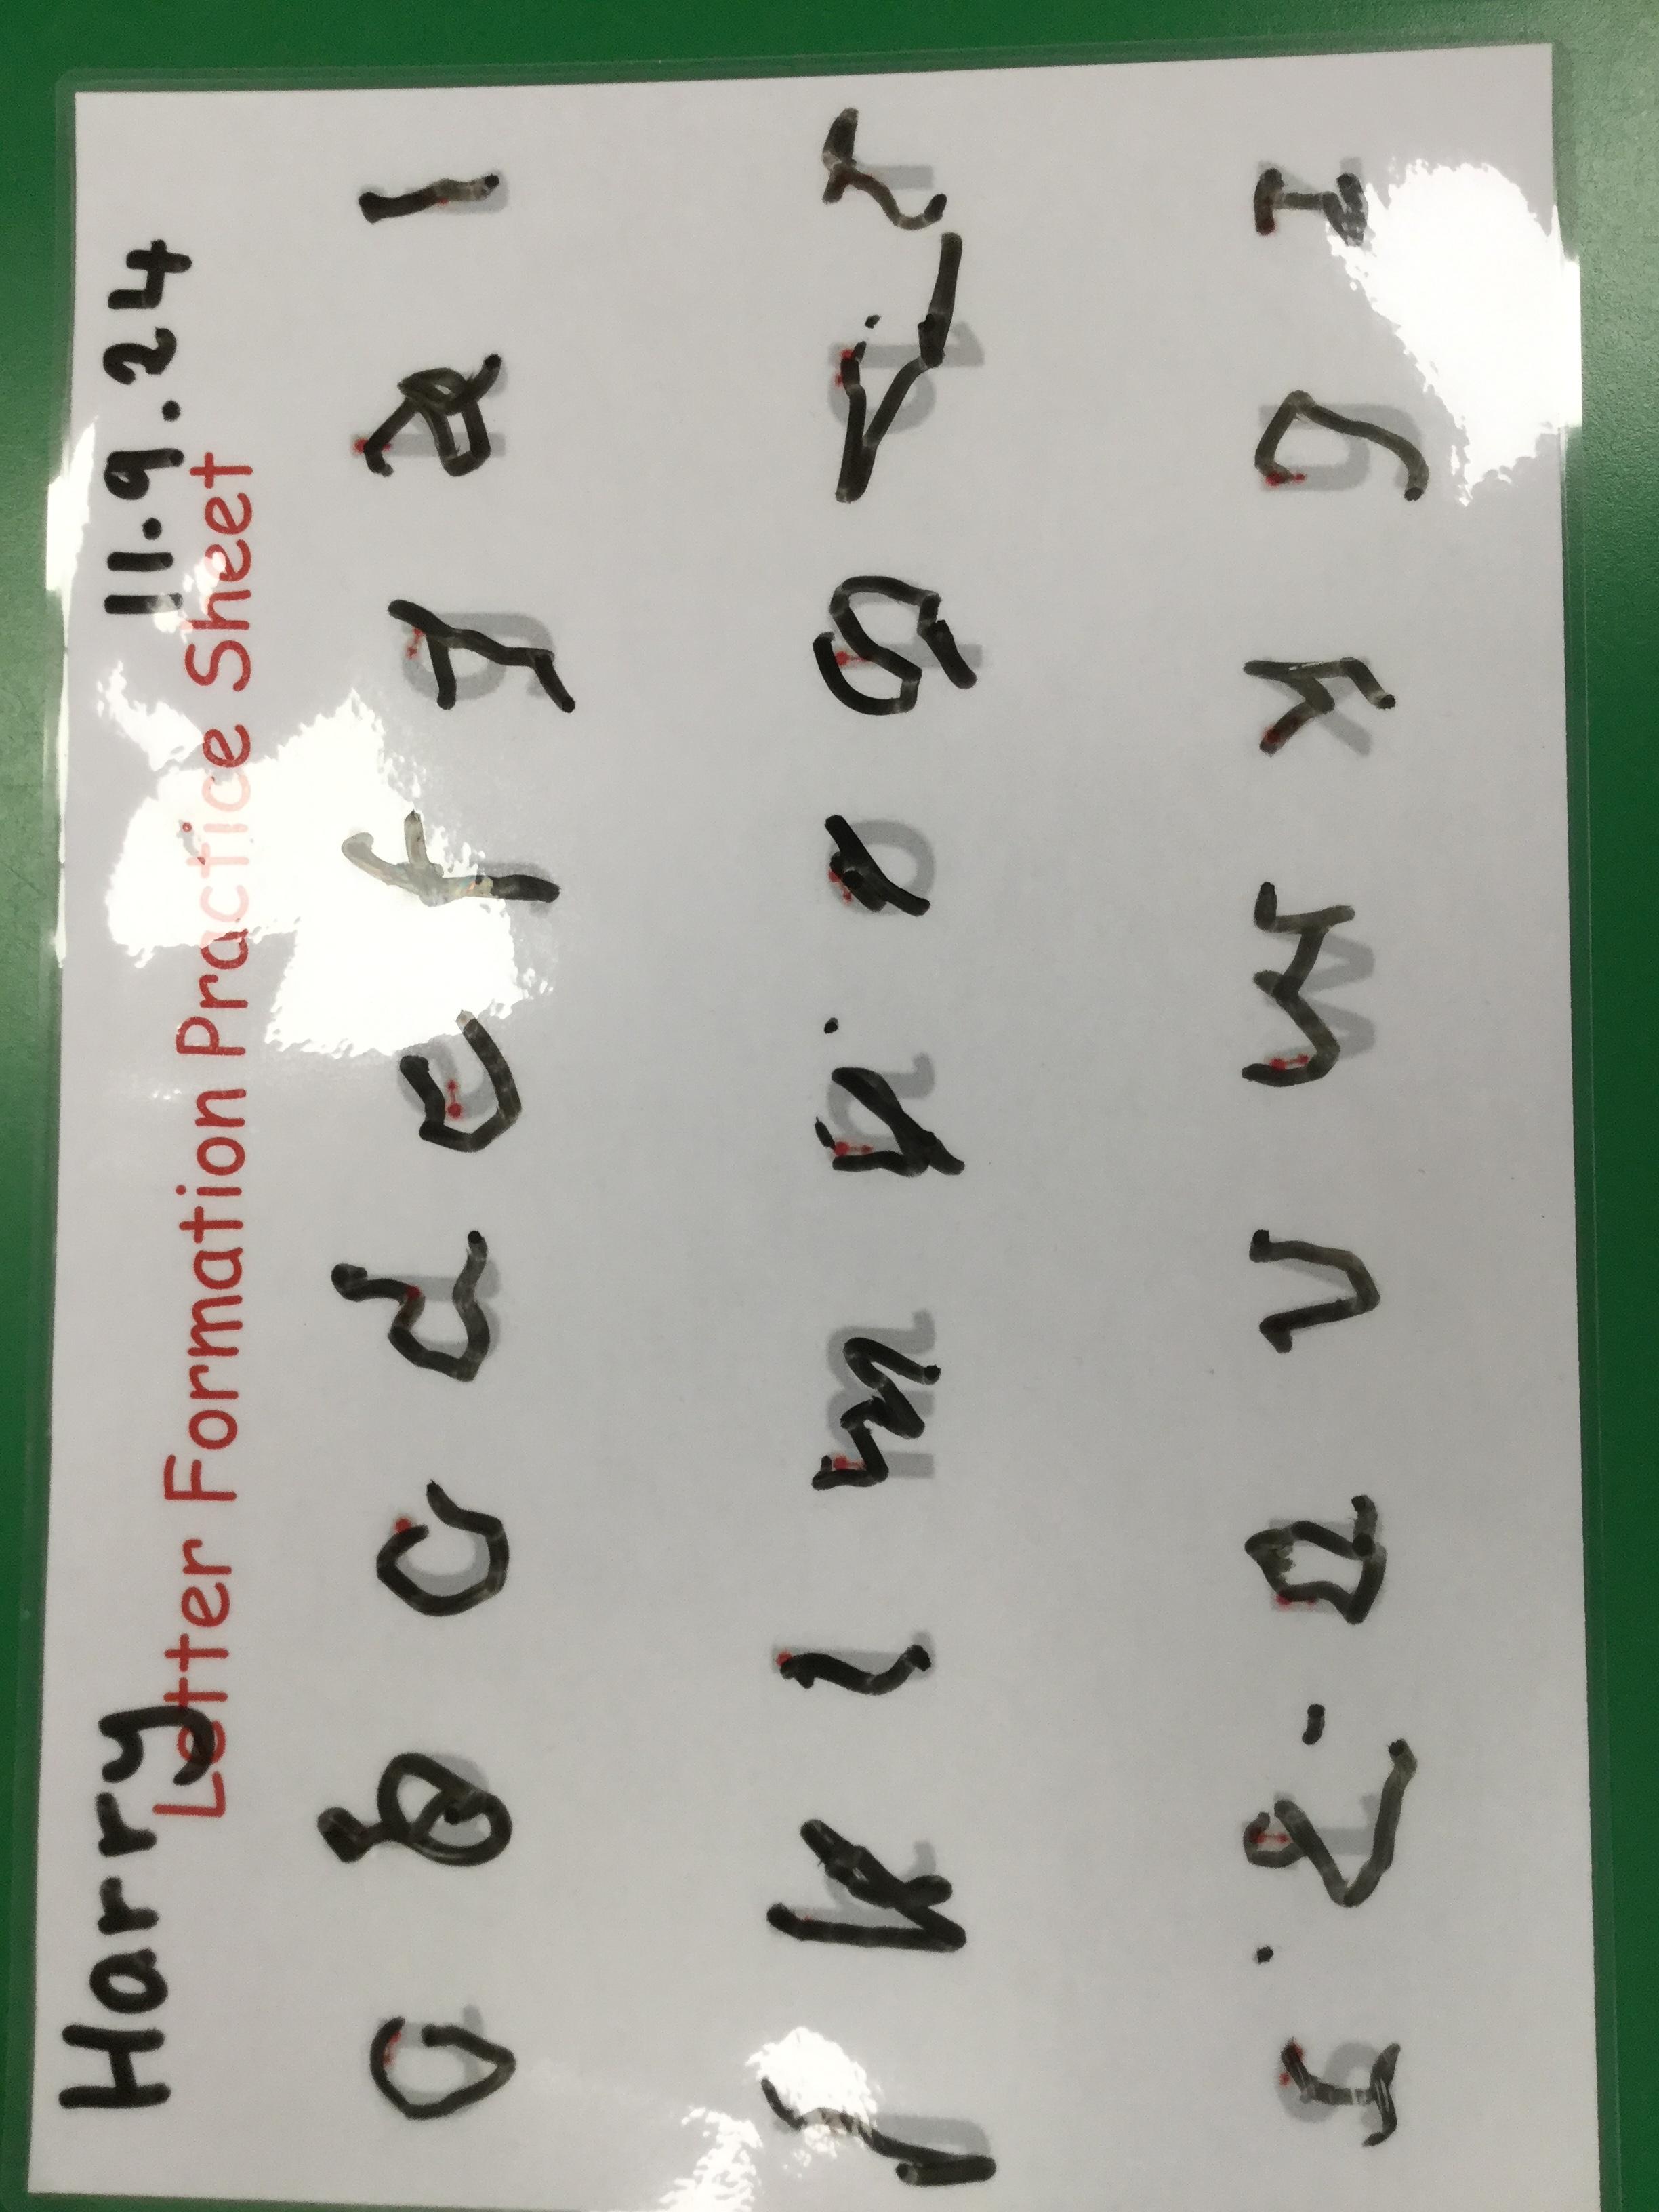 Harry 11.9.24
Letter Formation Practice Sheet
a b c d e f g h i
j k l m n o p q r
s t u v w x y z